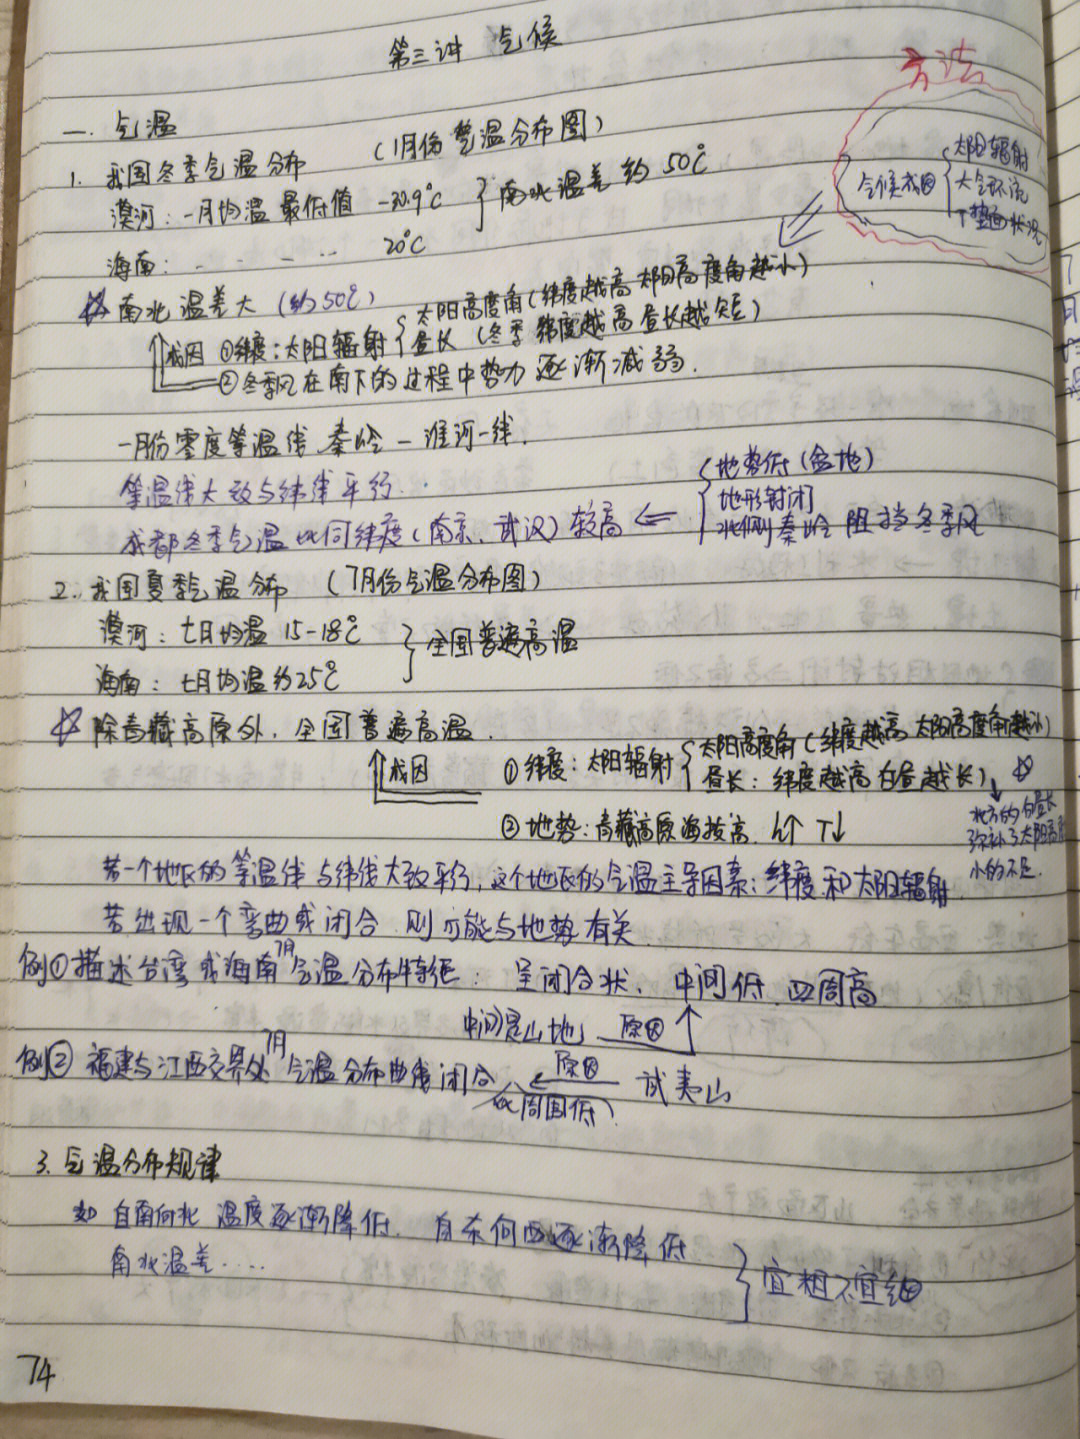 第三讲 气候
方法
气候成因 { 太阳辐射
大气环流
下垫面状况
一. 气温
1. 我国冬季气温分布 (1月份气温分布图)
漠河: 一月均温 最低值 -30.9℃ } 南北温差约50℃
海南: . . . . . . 20℃
☆南北温差大 (约50℃)
成因 ①纬度:太阳辐射 { 太阳高度角(纬度越高 太阳高度角越小)
昼长 (冬季 纬度越高 昼长越短)
②冬季风在南下的过程中势力逐渐减弱.
一月份零度等温线 秦岭—淮河一线.
等温线大致与纬线平行..
成都冬季气温比同纬度(南京、武汉)较高 ⇐ { 地势低(盆地)
地形封闭
北侧秦岭阻挡冬季风
2. 我国夏季气温分布 (7月份气温分布图)
漠河: 七月均温 15-18℃ } 全国普遍高温
海南: 七月均温约25℃
☆ 除青藏高原外, 全国普遍高温.
成因 ①纬度:太阳辐射 { 太阳高度角(纬度越高 太阳高度角越小)
昼长: 纬度越高 白昼越长) ☆
北方的白昼长
弥补了太阳高度
小的不足.
②地势:青藏高原海拔高. h↑ T↓
若一个地区的等温线与纬线大致平行,这个地区的气温主导因素:纬度和太阳辐射
若出现一个弯曲或闭合 则可能与地势有关
例① 描述台湾或海南7月气温分布特征: 呈闭合状, 中间低 四周高
中间是山地 原因
例② 福建与江西交界处7月气温分布曲线闭合 原因 武夷山
(比周围低)
3. 气温分布规律
如 自南向北 温度逐渐降低. 自东向西逐渐降低
南北温差.... } 宜粗不宜细
74